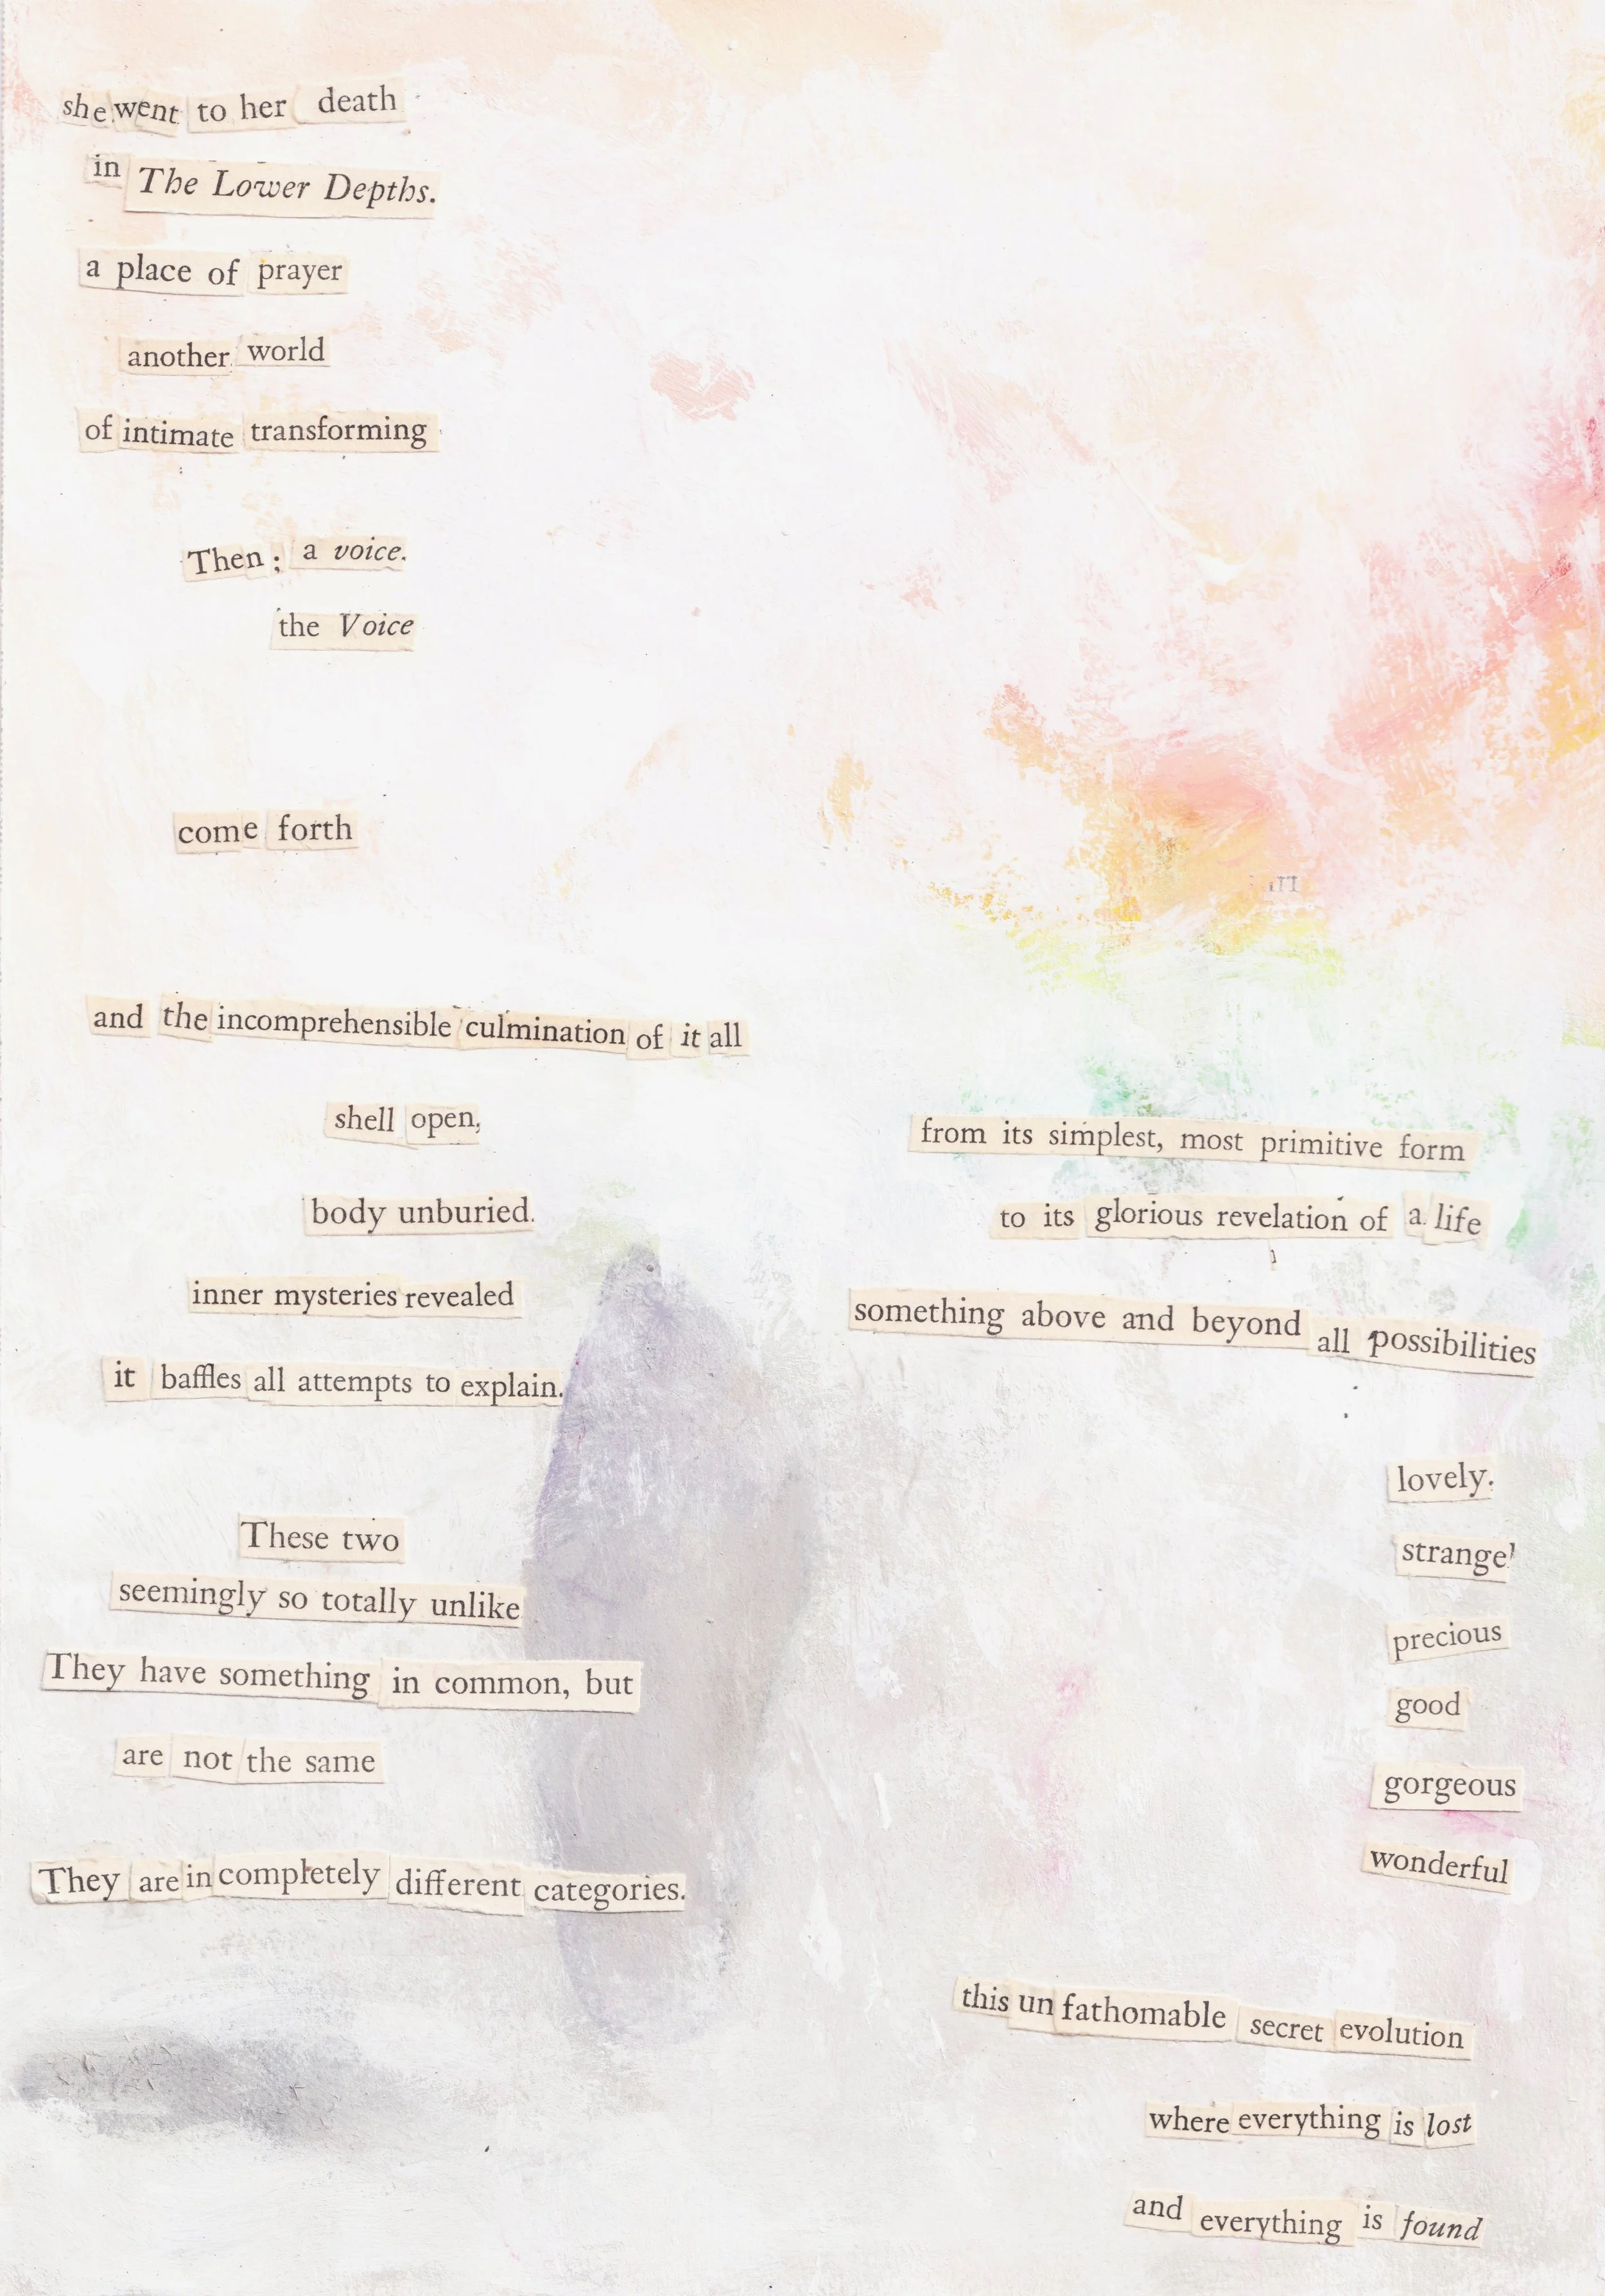 she went to her death
in The Lower Depths.
a place of prayer
another world
of intimate transforming
Then; a voice.
the Voice
come forth
and the incomprehensible culmination of it all
shell open,
body unburied.
inner mysteries revealed
it baffles all attempts to explain.
These two
seemingly so totally unlike
They have something in common, but
are not the same
They are in completely different categories.
from its simplest, most primitive form
to its glorious revelation of a life
something above and beyond all possibilities
lovely.
strange
precious
good
gorgeous
wonderful
this un fathomable secret evolution
where everything is lost
and everything is found